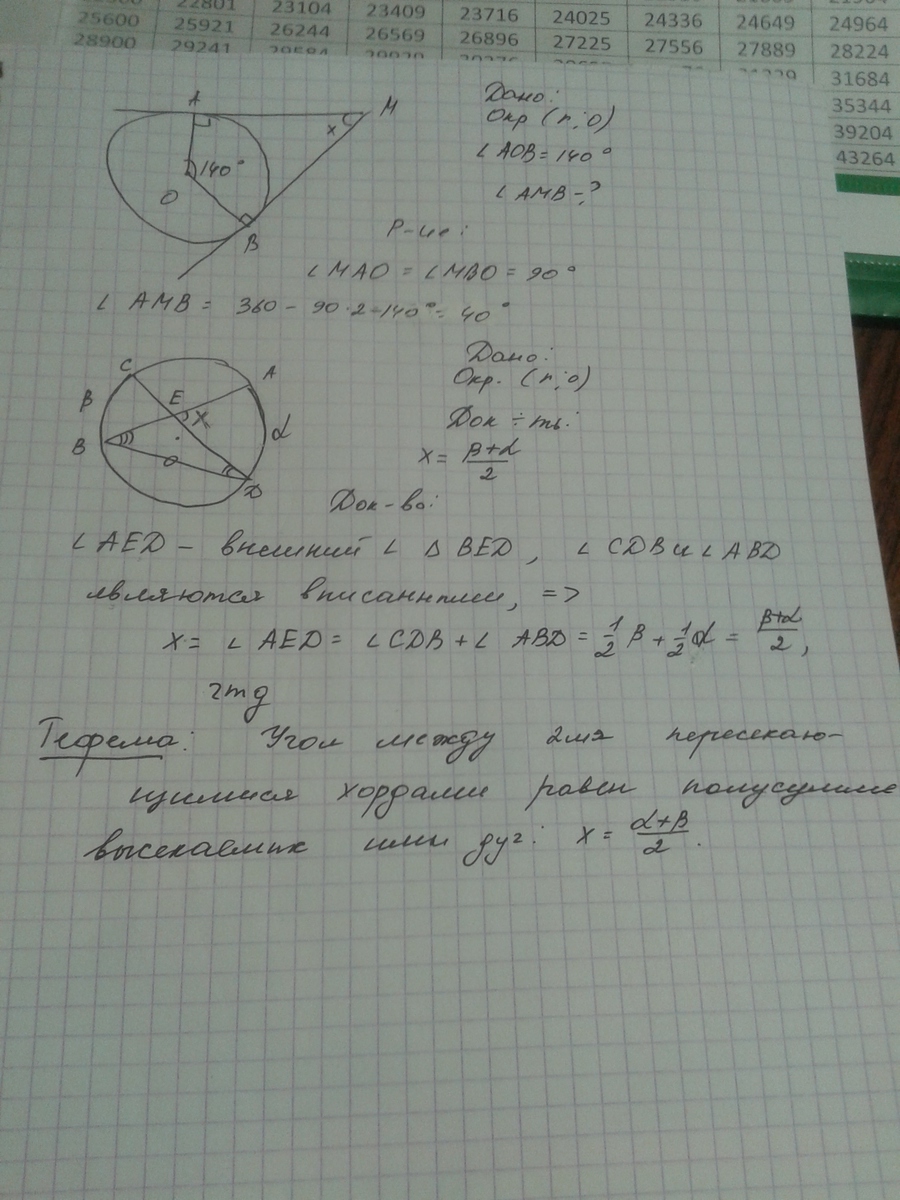 22801 23104 23409 23716 24025 24336 24649 24964
25600 25921 26244 26569 26896 27225 27556 27889 28224
28900 29241 31684
35344
39204
43264
A M
x
140°
O
B
Дано:
Окр (r; O)
∠ AOB = 140°
∠ AMB - ?
Р-ие:
∠ MAO = ∠ MBO = 90°
∠ AMB = 360 - 90·2 - 140° = 40°
C A
β E X
B α
O
D
Дано:
Окр. (r; O)
Док-ть:
x = β+α/2
Док-во:
∠ AED – внешний ∠ Δ BED, ∠ CDB и ∠ ABD
являются вписанными, =>
X = ∠ AED = ∠ CDB + ∠ ABD = 1/2 β + 1/2 α = β+α/2,
чтд
Теорема: Угол между 2мя пересекаю-
щимися хордами равен полусумме
высекаемых ими дуг: x = α+β/2.